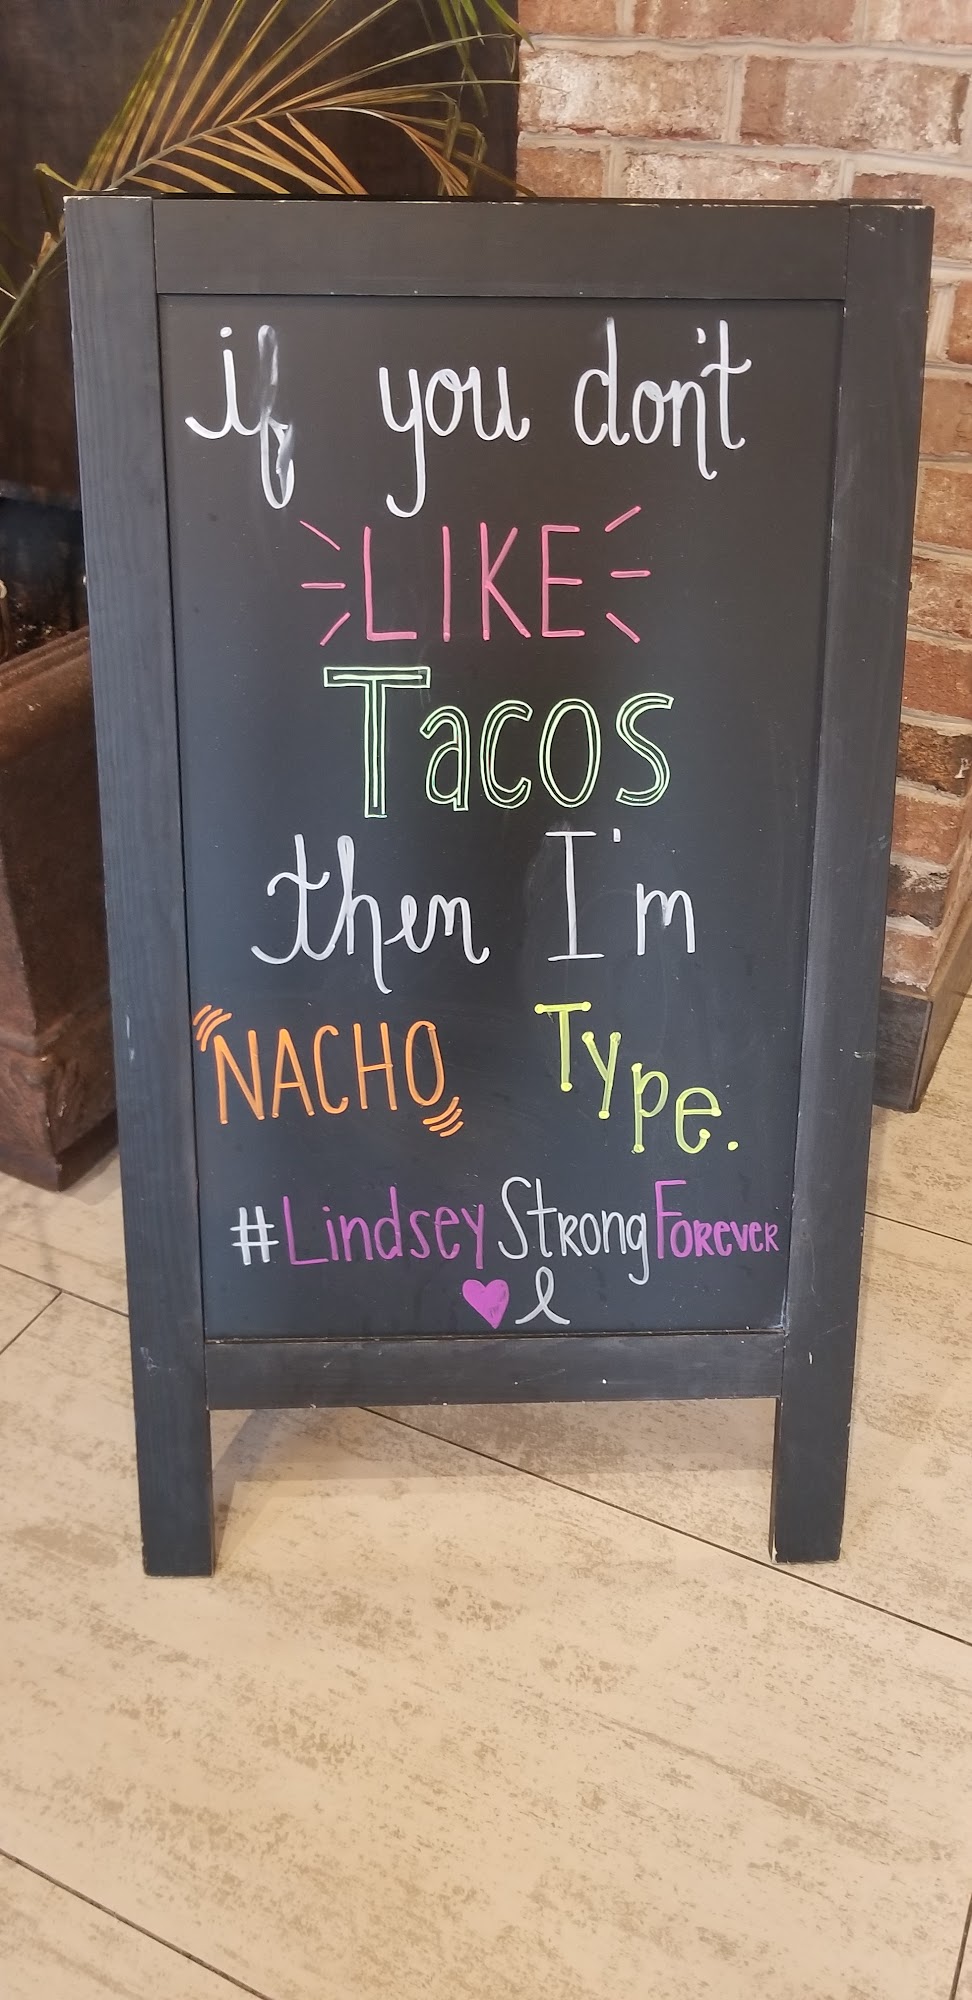 if you don't
LIKE
Tacos
then I'm
NACHO Type.
#LindseyStrongForever